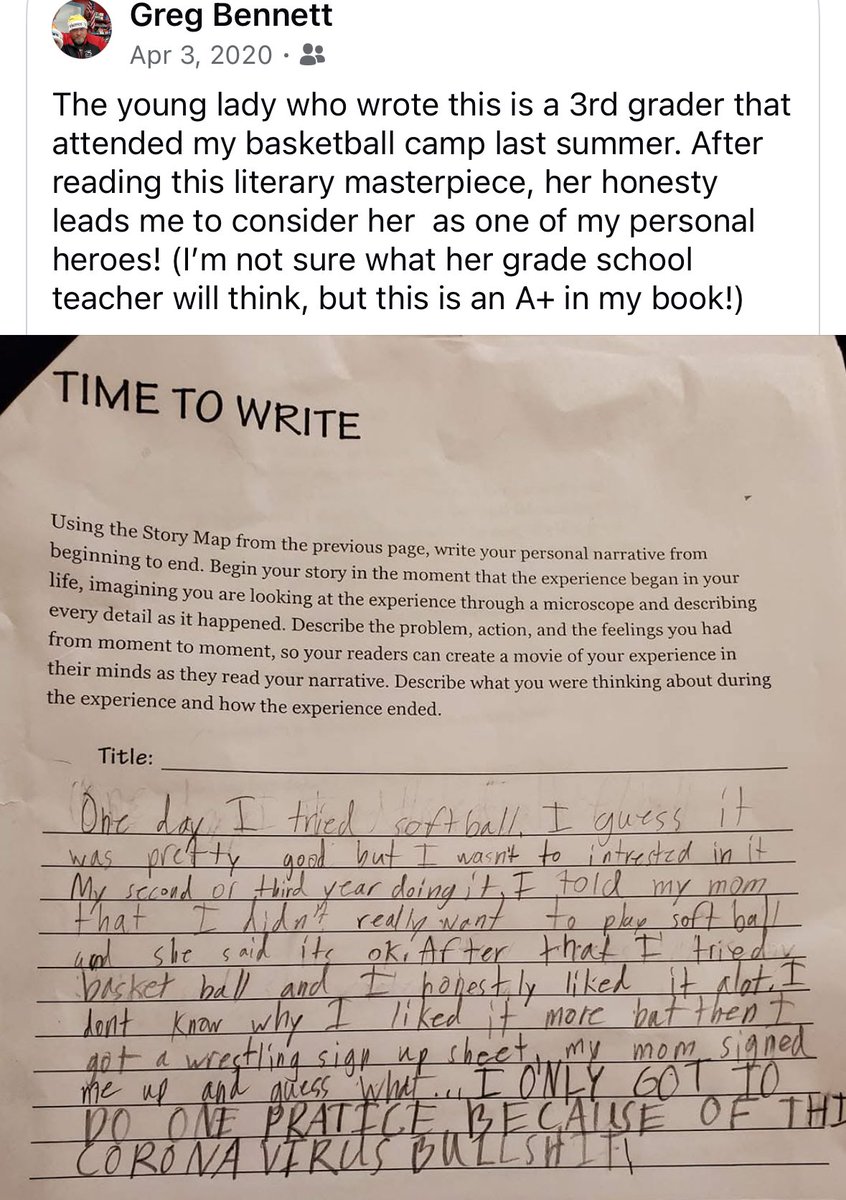 Greg Bennett
Apr 3, 2020 ·
The young lady who wrote this is a 3rd grader that
attended my basketball camp last summer. After
reading this literary masterpiece, her honesty
leads me to consider her as one of my personal
heroes! (I'm not sure what her grade school
teacher will think, but this is an A+ in my book!)
TIME TO WRITE
Using the Story Map from the previous page, write your personal narrative from
beginning to end. Begin your story in the moment that the experience began in your
life, imagining you are looking at the experience through a microscope and describing
every detail as it happened. Describe the problem, action, and the feelings you had
from moment to moment, so your readers can create a movie of your experience in
their minds as they read your narrative. Describe what you were thinking about during
the experience and how the experience ended.
Title:
One day I tried softball. I guess it
was pretty good but I wasn't to intrested in it
My second or third year doing it, I told my mom
that I didn't really want to play soft ball
and she said its ok. After that I tried
basket ball and I honestly liked it alot. I
dont know why I liked it more but then I
got a wrestling sign up sheet, my mom signed
me up and guess what... I ONLY GOT TO
DO ONE PRATICE BECAUSE OF THI
CORONA VIRUS BULLSHIT!